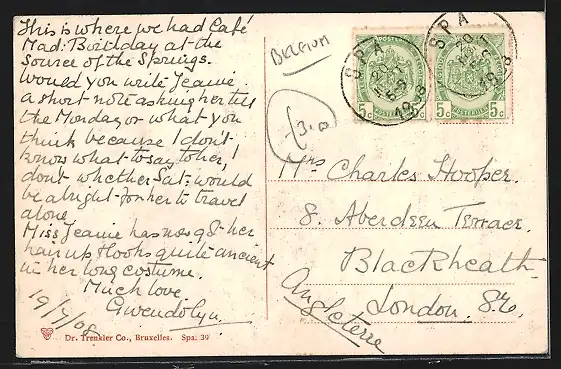 This is where we had Café
Mad: Birthday at the
Source of the Springs.
Would you write Jeanie
a short note asking her till
the Monday or what you
think because I don't
know what to say to her, I
don't whether Sat: would
be alright for her to travel
alone
Miss Jeanie has now got her
hair up & looks quite ancient
in her long costume.
Much love
Gwendolyn.
19/7/08
Dr. Trenkler Co., Bruxelles. Spa: 39
BELGIUM
3.0
SPA
1908
5c 5c
SPA
1908
5c 5c
Mrs Charles Hooper.
8. Aberdeen Terrace.
Blackheath
London. S.E.
Angleterre